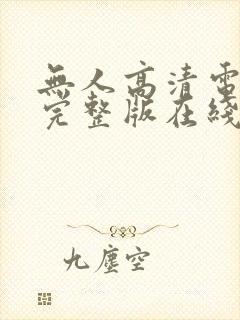 無人高清電
完整版在綫
九塵空